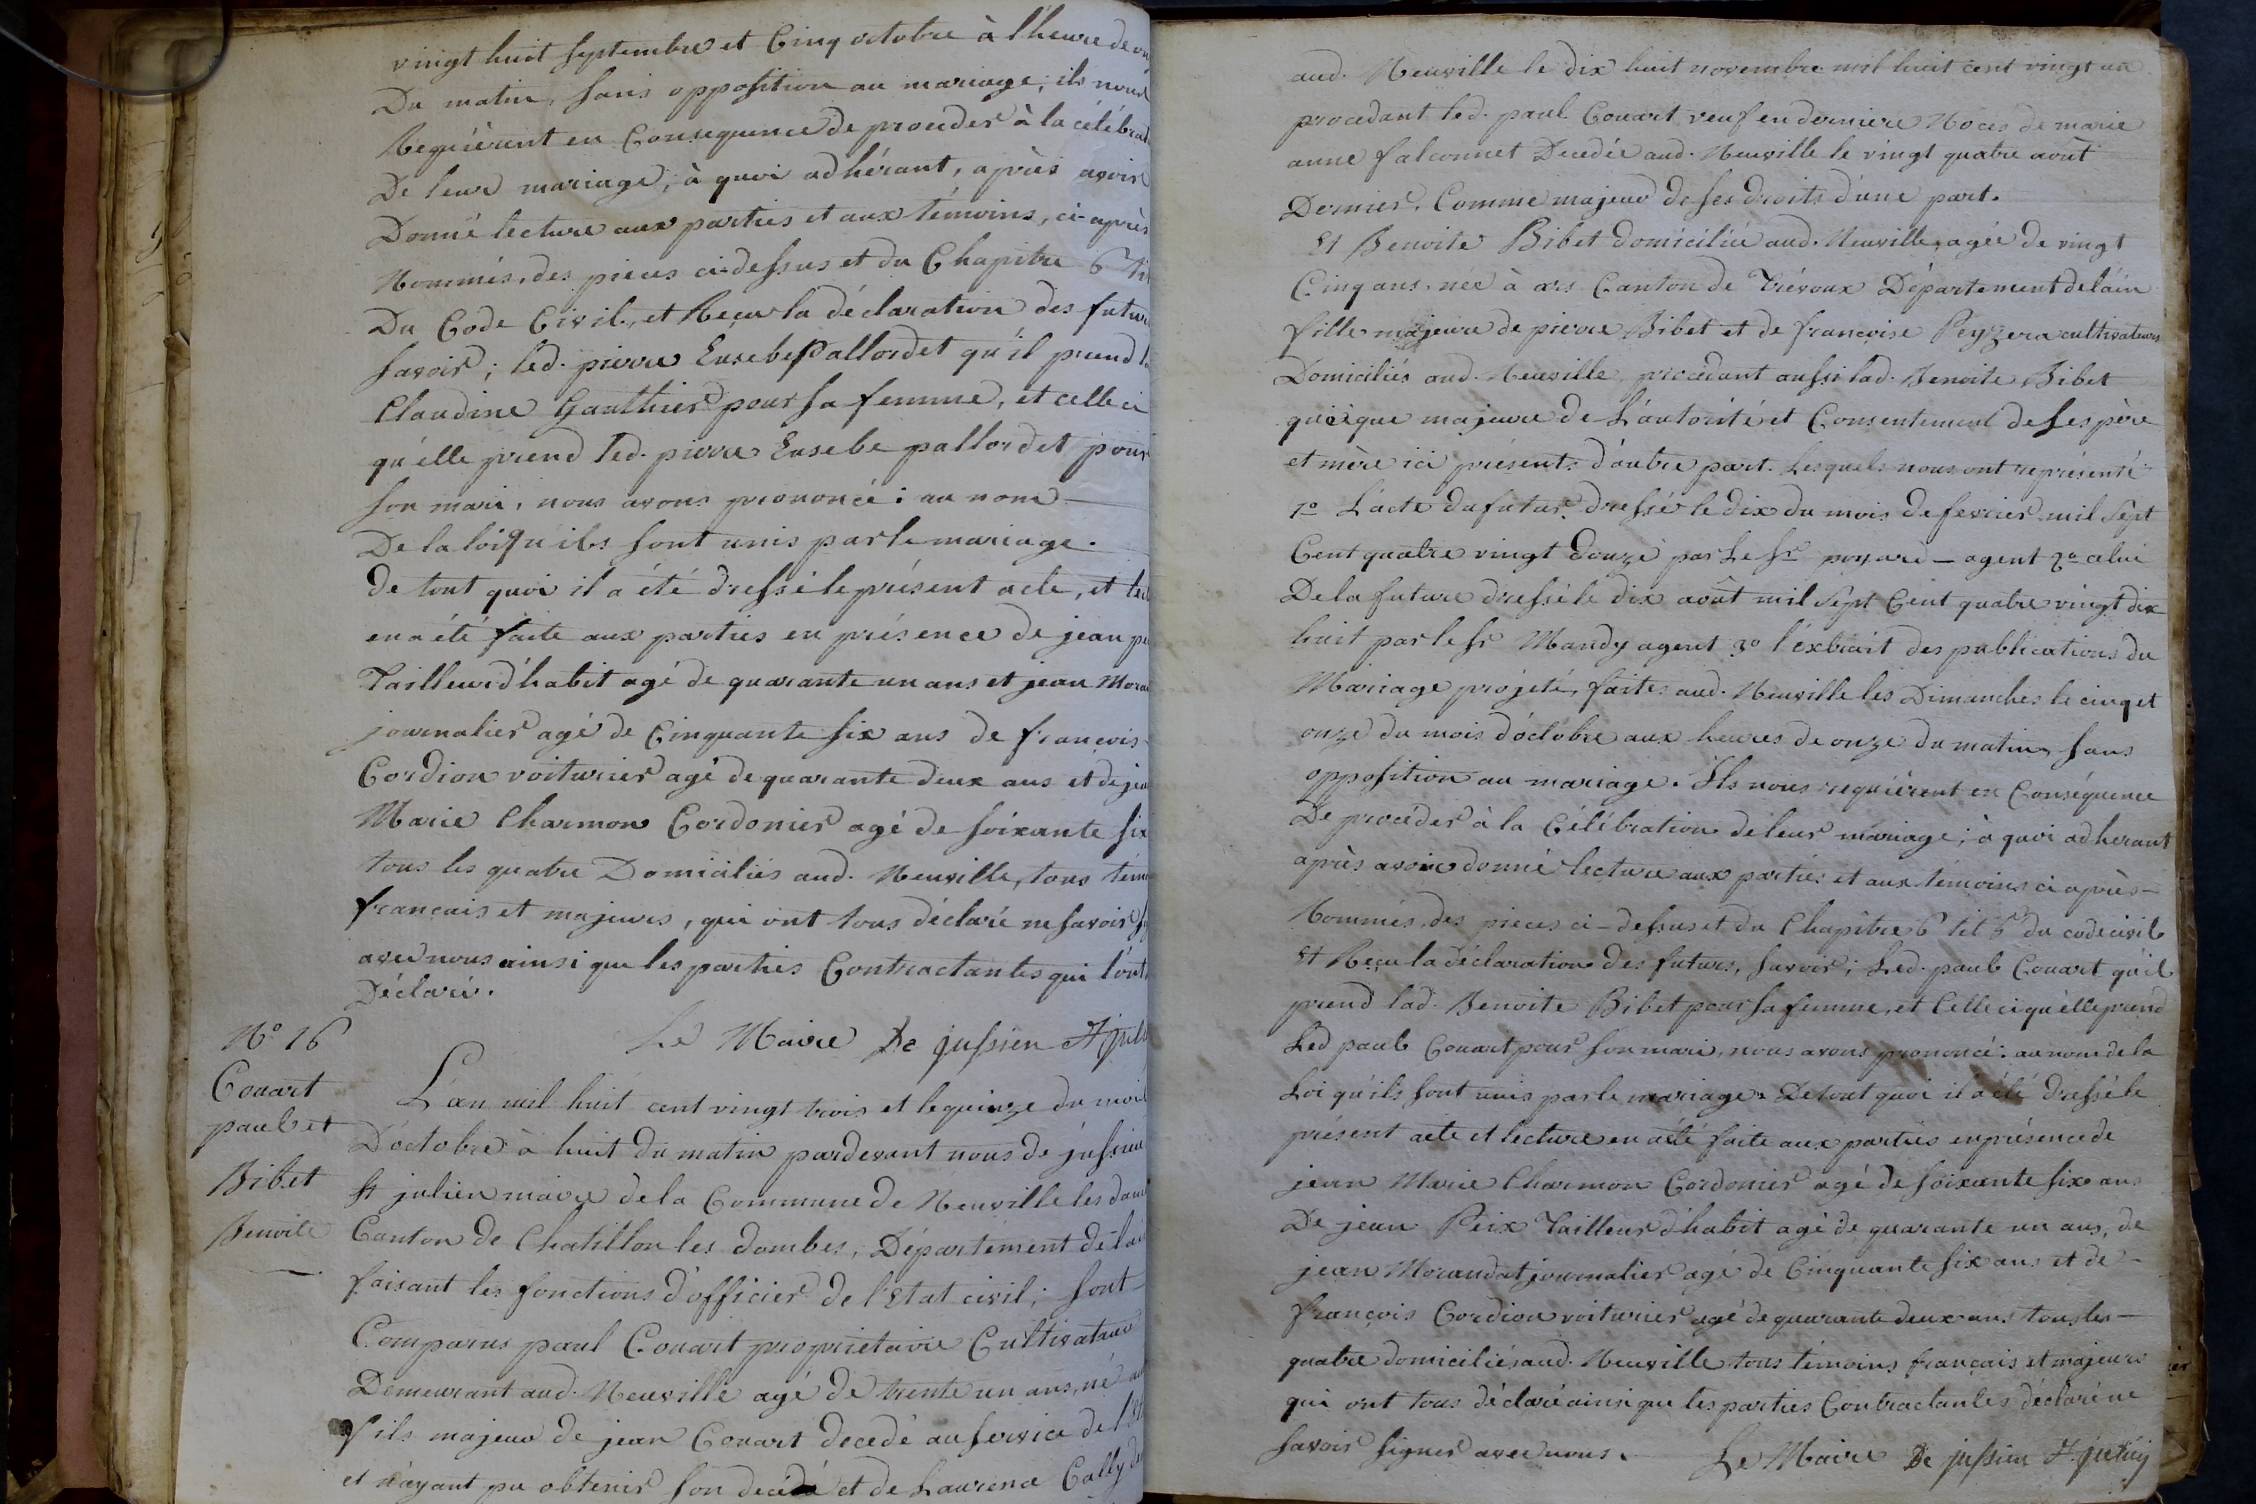 vingt huit septembre et Cinq octobre à l'heure de
Du matin, sans opposition au mariage; ils nous
Requièrent en Consequence de proceder à la célébrat
De leur mariage; à quoi adhérant, après avoir
Donné lecture aux parties et aux témoins, ci-après
Nommés, des pieces ci-dessus et du Chapitre 6 tit
Du Code Civil, et Reçu la déclaration des futur
savoir; led. pierre Eusebe pallordet qu'il prend l
Claudine Gauthier pour sa femme, et celle ci
qu'elle prend led. pierre Eusebe pallordet pour
son mari, nous avons prononcé: au nom
De la loi qu'ils sont unis par le mariage.
de tout quoi il a été dressé le présent acte, et lec
en a été faite aux parties en présence de jean pe
Tailleur d'habit agé de quarante un ans et jean Moran
journalier agé de Cinquante six ans de françois
Cordion voiturier agé de quarante deux ans et de jea
Marie Charmon Cordonier agé de soixante six
tous les quatre Domiciliés aud. Neuville, tous témo
français et majeurs, qui ont tous déclaré ne savoir s
avec nous ainsi que les parties Contractantes qui l'ont
Déclaré.
Le Maire De jussieu St juli
N° 16
Couart
paul et
Bibet
Benoite
L'an mil huit cent vingt trois et le quinze du mois
D'octobre à huit du matin pardevant nous de jussieu
St julien maire de la Commune de Neuville les dam
Canton de Chatillon les dombes, Département de l'ai
faisant les fonctions d'officier de l'Etat civil; sont
Comparus paul Couart propriétaire Cultivateur
Demeurant aud. Neuville agé de trente un ans, né au
fils majeur de jean Couart decedé au service de l'Et
et n'ayant pu obtenir son decédé et de Laurence Cally
aud. Neuville le dix huit novembre mil huit cent vingt un
procedant led. paul Couart veuf en derniere Noces de marie
anne falconnet Decedée aud. Neuville le vingt quatre août
Dernier, Comme majeur de ses droits d'une part.
Et Benoite Bibet domiciliée aud. Neuville, agée de vingt
Cinq ans, née à ars Canton de Trévoux Département de l'ain
fille majeure de pierre Bibet et de françoise Peyzera cultivateurs
Domiciliés aud. Neuville, procedant aussi lad. Benoite Bibet
quoique majeure de l'autorité et Consentement de ses père
et mère ici présents d'autre part. Lesquels nous ont représenté
1° L'acte du futur dressé le dix du mois de fevrier mil sept
Cent quatre vingt douze par le Sr poyard — agent 2° celui
De la future dressé le dix août mil sept Cent quatre vingt dix
huit par le Sr Mandy agent 3° l'éxtrait des publications du
Mariage projeté, faites aud. Neuville les Dimanches le cinq et
onze du mois d'octobre aux heures de onze du matin, sans
opposition au mariage. Ils nous requièrent en Conséquence
De procéder à la Célébration de leur mariage; à quoi adherant
après avoir donné lecture aux parties et aux témoins ci après —
Nommés, des pieces ci-dessus et du Chapitre 6 tit 5 du code civil
Et Reçu la déclaration des futurs, savoir; Led. paul Couart qu'il
prend lad. Benoite Bibet pour sa femme, et Celle ci qu'elle prend
Led paul Couart pour son mari, nous avons prononcé: au nom de la
Loi qu'ils sont unis par le mariage. De tout quoi il a été dressé le
présent acte et lecture en a été faite aux parties en présence de
jean Marie Charmon Cordonier agé de soixante six ans
De jean Peix Tailleur d'habit agé de quarante un ans, de
jean Morandat journalier agé de Cinquante six ans et de —
françois Cordion voiturier agé de quarante deux ans tous les —
quatre domiciliés aud. Neuville tous témoins français et majeurs
qui ont tous déclaré ainsi que les parties Contractantes déclaré ne
savoir signer avec nous.
Le Maire De jussieu St julien